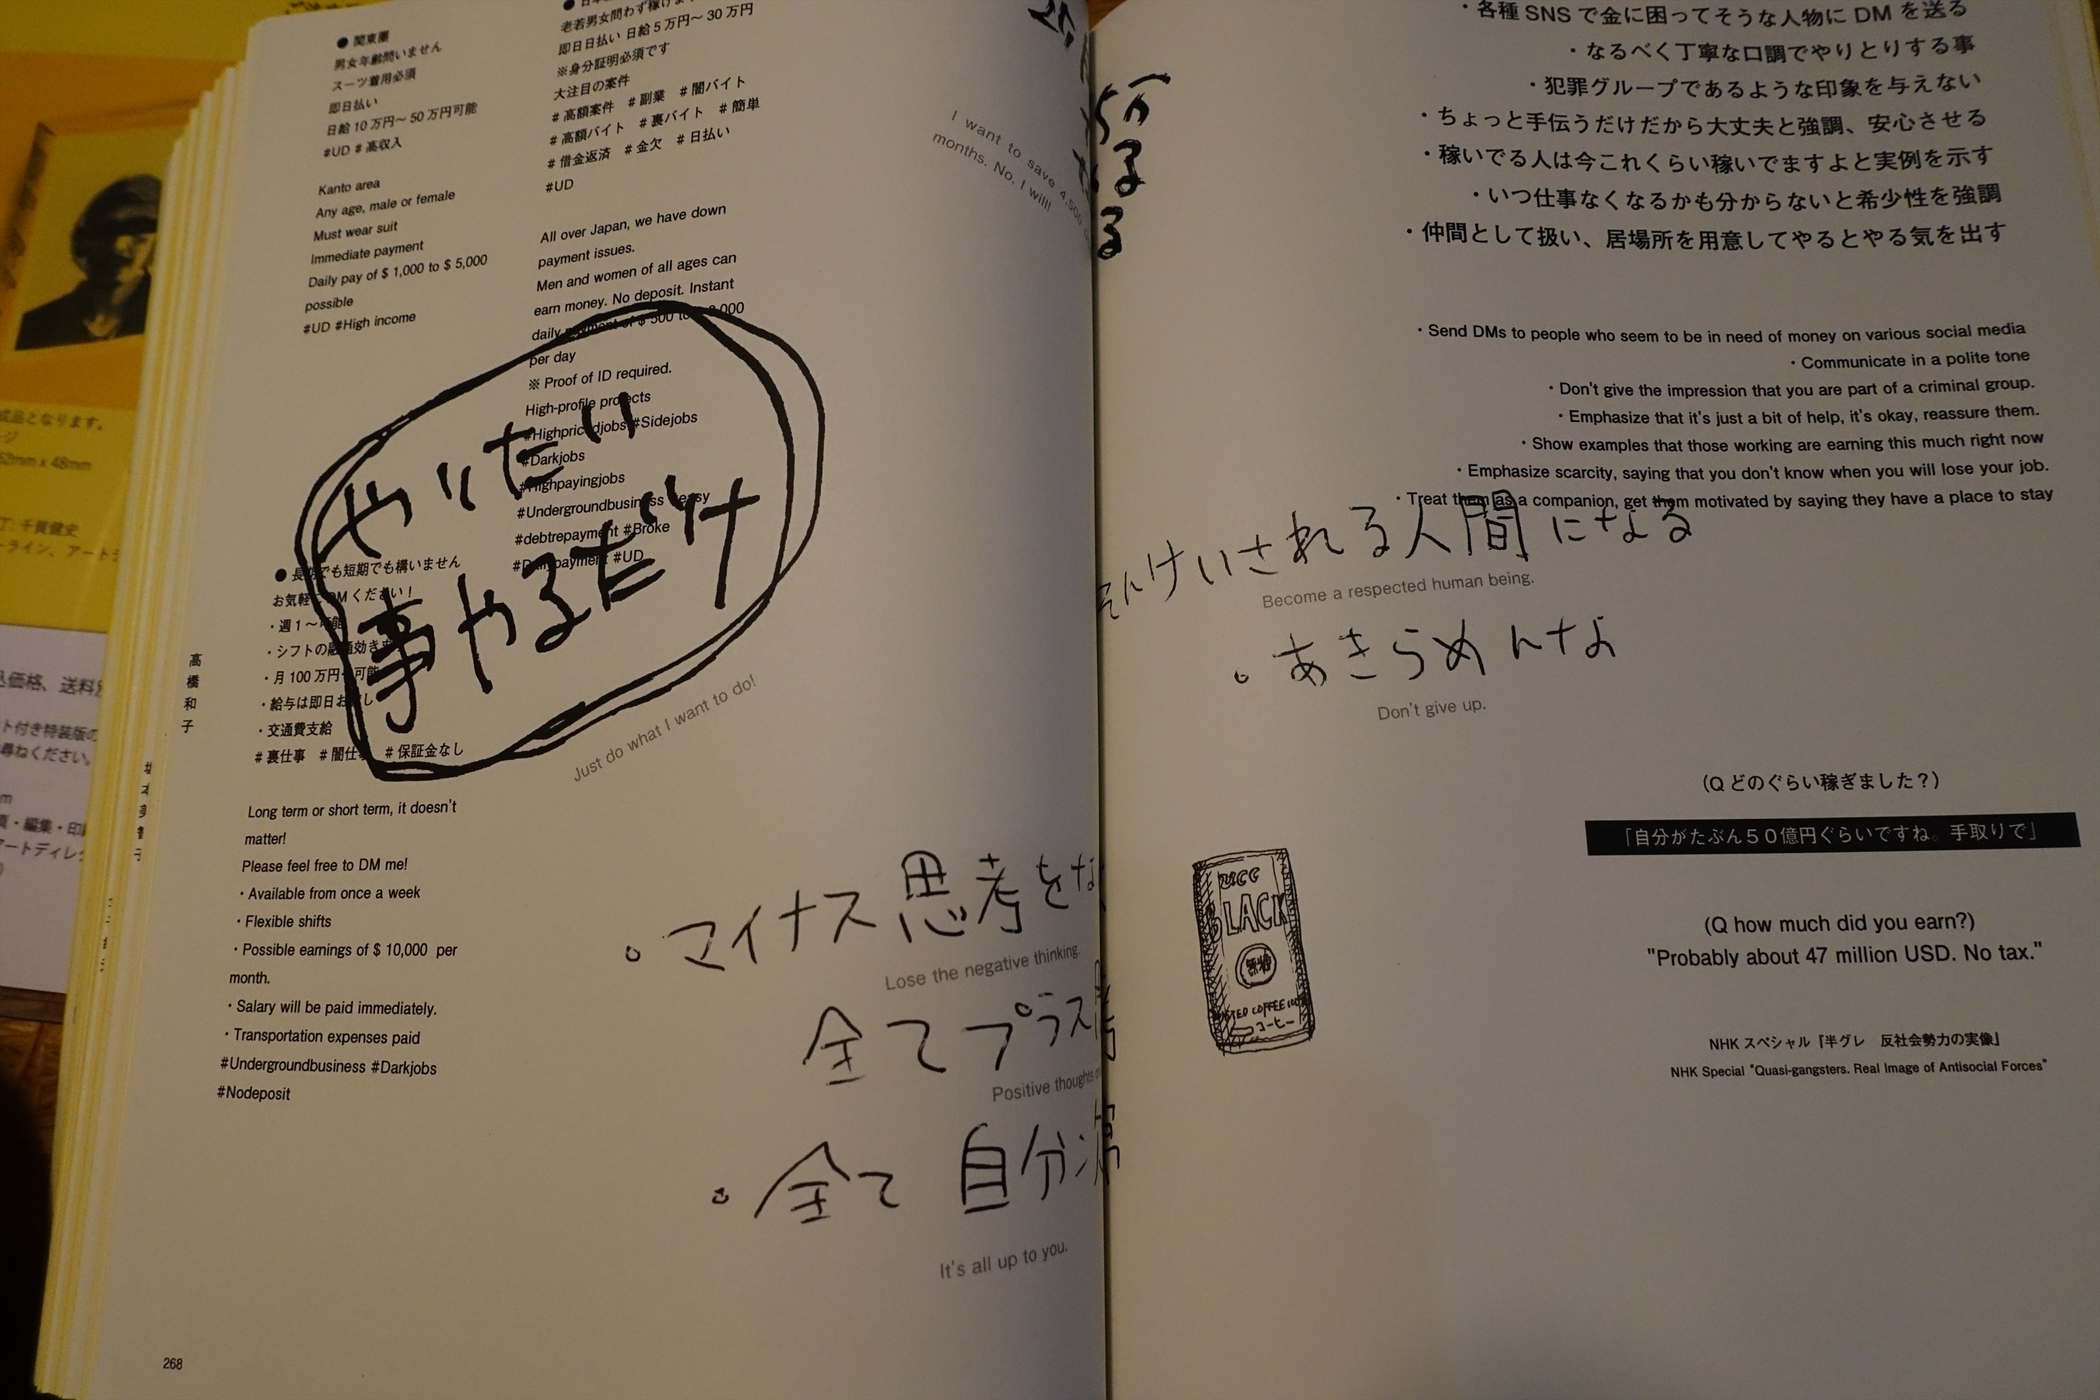 ● 関東圏
男女年齢問いません
スーツ着用必須
即日払い
日給 10 万円〜 50 万円可能
#UD # 高収入
Kanto area
Any age, male or female
Must wear suit
Immediate payment
Daily pay of $ 1,000 to $ 5,000
possible
#UD #High income
老若男女問わず稼げ
即日日払い 日給 5 万円〜 30 万円
※身分証明必須です
大注目の案件
# 高額案件 # 副業 # 闇バイト
# 高額バイト # 裏バイト # 簡単
# 借金返済 # 金欠 # 日払い
#UD
All over Japan, we have down
payment issues.
Men and women of all ages can
earn money. No deposit. Instant
daily payment of $ 500 to
per day
※ Proof of ID required.
High-profile projects
#Highpricedjobs #Sidejobs
#Darkjobs
#Highpayingjobs
#Undergroundbusiness #easy
#debtrepayment #Broke
#Dailypayment #UD
I want to save 4,500
months. No, I will!
やりたい
事やるだけ
Just do what I want to do!
● 長期でも短期でも構いません
お気軽にDMください！
・週 1 〜可能
・シフトの融通効きます
・月 100 万円 可能
・給与は即日お渡し
・交通費支給
# 裏仕事 # 闇仕事 # 保証金なし
Long term or short term, it doesn't
matter!
Please feel free to DM me!
・Available from once a week
・Flexible shifts
・Possible earnings of $ 10,000 per
month.
・Salary will be paid immediately.
・Transportation expenses paid
#Undergroundbusiness #Darkjobs
#Nodeposit
高橋和子
マイナス思考をな
Lose the negative thinking.
全てプラス
Positive thoughts
全て 自分
It's all up to you.
268
・各種 SNS で金に困ってそうな人物に DM を送る
・なるべく丁寧な口調でやりとりする事
・犯罪グループであるような印象を与えない
・ちょっと手伝うだけだから大丈夫と強調、安心させる
・稼いでる人は今これくらい稼いでますよと実例を示す
・いつ仕事なくなるかも分からないと希少性を強調
・仲間として扱い、居場所を用意してやるとやる気を出す
・Send DMs to people who seem to be in need of money on various social media
・Communicate in a polite tone
・Don't give the impression that you are part of a criminal group.
・Emphasize that it's just a bit of help, it's okay, reassure them.
・Show examples that those working are earning this much right now
・Emphasize scarcity, saying that you don't know when you will lose your job.
・Treat them as a companion, get them motivated by saying they have a place to stay
そんけいされる人間になる
Become a respected human being.
あきらめんなよ
Don't give up.
（Q どのぐらい稼ぎました？）
「自分がたぶん５０億円ぐらいですね。手取りで」
(Q how much did you earn?)
"Probably about 47 million USD. No tax."
NHK スペシャル「半グレ 反社会勢力の実像」
NHK Special "Quasi-gangsters. Real Image of Antisocial Forces"
UCC
BLACK
無糖
コーヒー
成品となります。
52mm x 48mm
千賀健史
込価格、送料
ト付き特装版の
尋ねください。